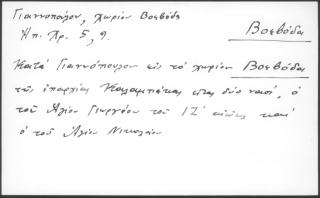 Γιαννοπούλου, χωρίον Βοεβόδα
Ηπ. Χρ. 5, 9.
Βοεβόδα
Κατά Γιαννόπουλον εις το χωρίον Βοεβόδα
της επαρχίας Καλαμπάκας είναι δύο ναοί, ο
του Αγίου Γεωργίου του ΙΖ΄ αιώνος και
ο του Αγίου Νικολάου